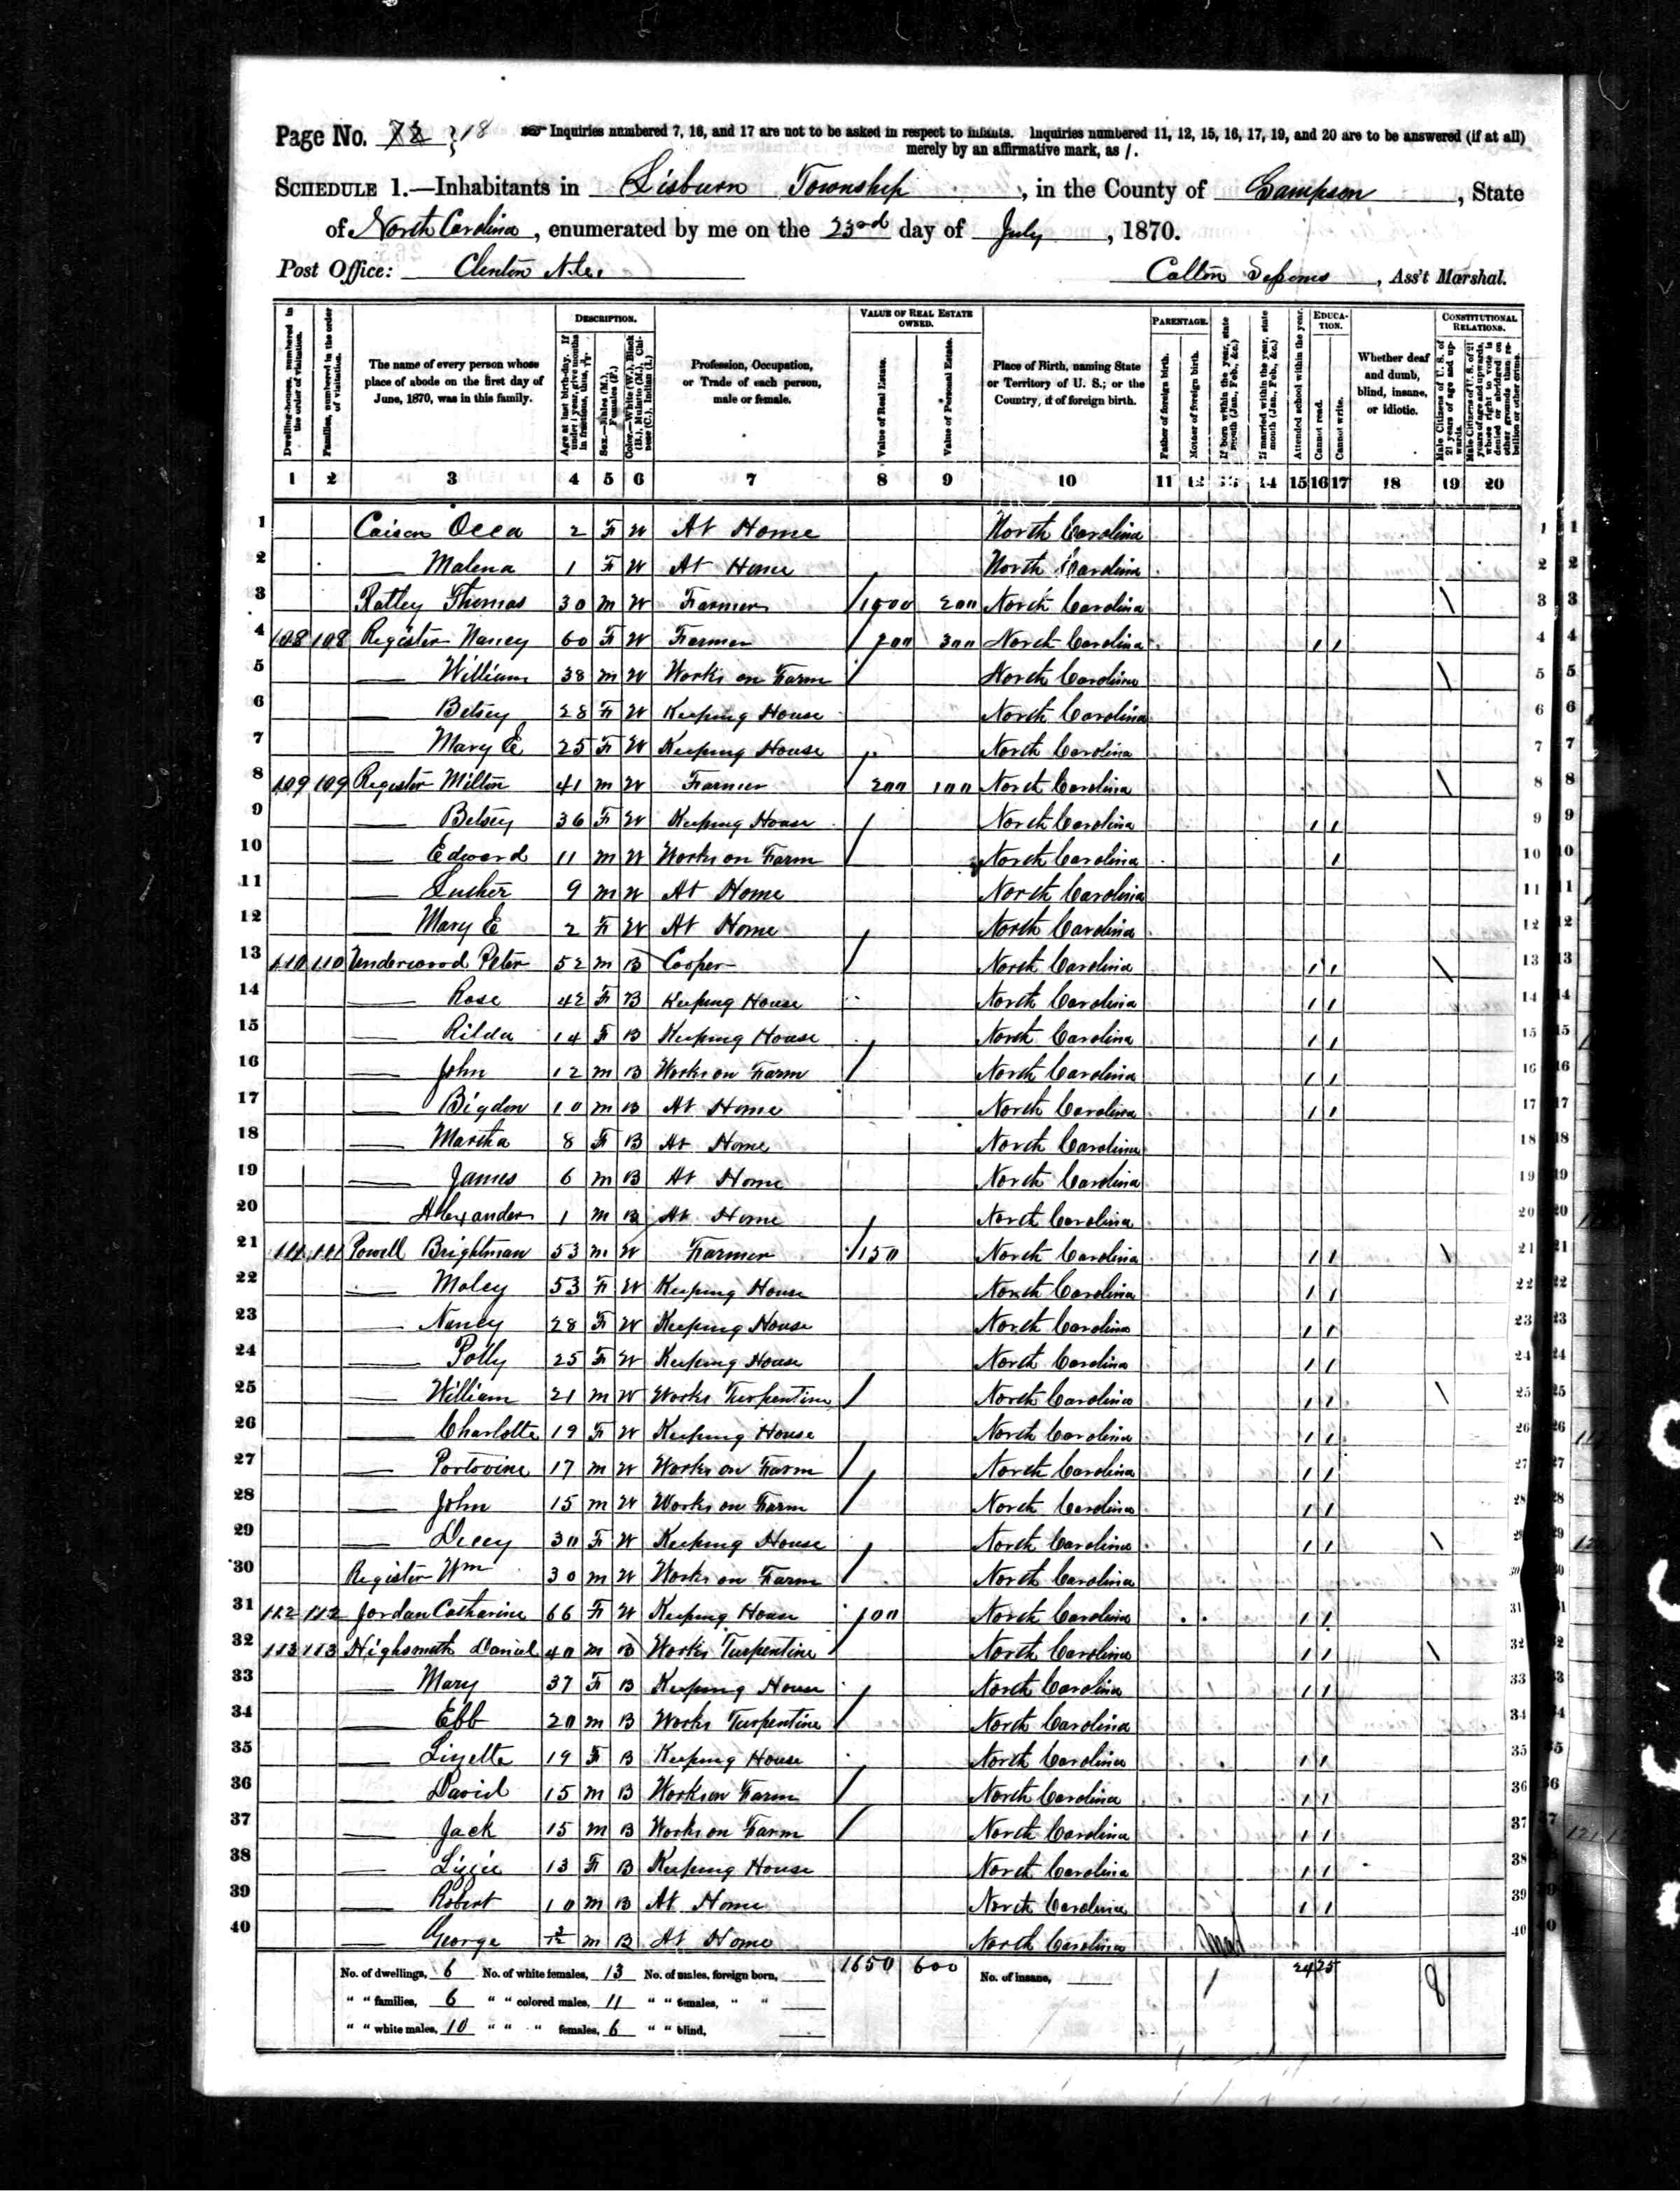 Page No. 72 18 Inquiries numbered 7, 16, and 17 are not to be asked in respect to infants. Inquiries numbered 11, 12, 15, 16, 17, 19, and 20 are to be answered (if at all)
merely by an affirmative mark, as /.
SCHEDULE 1.—Inhabitants in Lisburn Township, in the County of Sampson, State
of North Carolina, enumerated by me on the 23rd day of July, 1870.
Post Office: Clinton N.C. Ass't Marshal.
Dwelling-houses, numbered in the order of visitation.
Families, numbered in the order of visitation.
The name of every person whose place of abode on the first day of June, 1870, was in this family.
DESCRIPTION.
Age at last birth-day. If under 1 year, give months in fractions, thus,
Sex.—Males (M.), Females (F.)
Color.—White (W.), Black (B.), Mulatto (M.), Chinese (C.), Indian (I.)
Profession, Occupation, or Trade of each person, male or female.
VALUE OF REAL ESTATE OWNED.
Value of Real Estate.
Value of Personal Estate.
Place of Birth, naming State or Territory of U. S.; or the Country, if of foreign birth.
PARENTAGE.
Father of foreign birth.
Mother of foreign birth.
If born within the year, state month (Jan., Feb., &c.)
If married within the year, state month (Jan., Feb., &c.)
EDUCATION.
Attended school within the year.
Cannot read.
Cannot write.
Whether deaf and dumb, blind, insane, or idiotic.
CONSTITUTIONAL RELATIONS.
Male Citizens of U. S. of 21 years of age and upwards.
Male Citizens of U. S. of 21 years of age and upwards, whose right to vote is denied or abridged on other grounds than rebellion or other crime.
1 2 3 4 5 6 7 8 9 10 11 12 13 14 15 16 17 18 19 20
1 Caison Occa 2 F W At Home North Carolina 1
2 Malena 1 F W At Home North Carolina 2
3 Ratley Thomas 30 M W Farmer 1000 200 North Carolina 3
4 108 108 Register Nancy 60 F W Farmer 200 300 North Carolina / / 4
5 William 38 M W Works on Farm North Carolina 5
6 Betsey 28 F W Keeping House North Carolina 6
7 Mary E 25 F W Keeping House North Carolina 7
8 109 109 Register Milton 41 M W Farmer 200 100 North Carolina 8
9 Betsey 36 F W Keeping House North Carolina / / 9
10 Edward 11 M W Works on Farm North Carolina / 10
11 Luther 9 M W At Home North Carolina 11
12 Mary E 2 F W At Home North Carolina 12
13 110 110 Underwood Peter 52 M B Cooper North Carolina / / 13
14 Rose 42 F B Keeping House North Carolina / / 14
15 Rilda 14 F B Keeping House North Carolina / / 15
16 John 12 M B Works on Farm North Carolina / / 16
17 Bigdon 10 M B At Home North Carolina / / 17
18 Martha 8 F B At Home North Carolina 18
19 James 6 M B At Home North Carolina 19
20 Alexander 1 M B At Home North Carolina 20
21 111 111 Powell Brightman 53 M W Farmer 150 North Carolina / / 21
22 Moley 53 F W Keeping House North Carolina / / 22
23 Nancy 28 F W Keeping House North Carolina / / 23
24 Polly 25 F W Keeping House North Carolina / / 24
25 William 21 M W Works Turpentine North Carolina / / 25
26 Charlotte 19 F W Keeping House North Carolina / / 26
27 Portovine 17 M W Works on Farm North Carolina / / 27
28 John 15 M W Works on Farm North Carolina / / 28
29 Dicey 30 F W Keeping House North Carolina / / 29
30 Register Wm 30 M W Works on Farm North Carolina 30
31 112 112 Jordan Catharine 66 F W Keeping House 100 North Carolina / / 31
32 113 113 Highsmith Daniel 40 M B Works Turpentine North Carolina / / 32
33 Mary 37 F B Keeping House North Carolina / / 33
34 Ebb 20 M B Works Turpentine North Carolina 34
35 Lizette 19 F B Keeping House North Carolina / / 35
36 David 15 M B Works on Farm North Carolina / / 36
37 Jack 15 M B Works on Farm North Carolina / / 37
38 Lizzie 13 F B Keeping House North Carolina / / 38
39 Robert 10 M B At Home North Carolina / / 39
40 George 2/12 M B At Home North Carolina 40
No. of dwellings, 6 No. of white females, 13 No. of males, foreign born, 1650 600 No. of insane, 1 24 25 8
" " families, 6 " " colored males, 11 " " females, " "
" " white males, 10 " " " females, 6 " " blind,